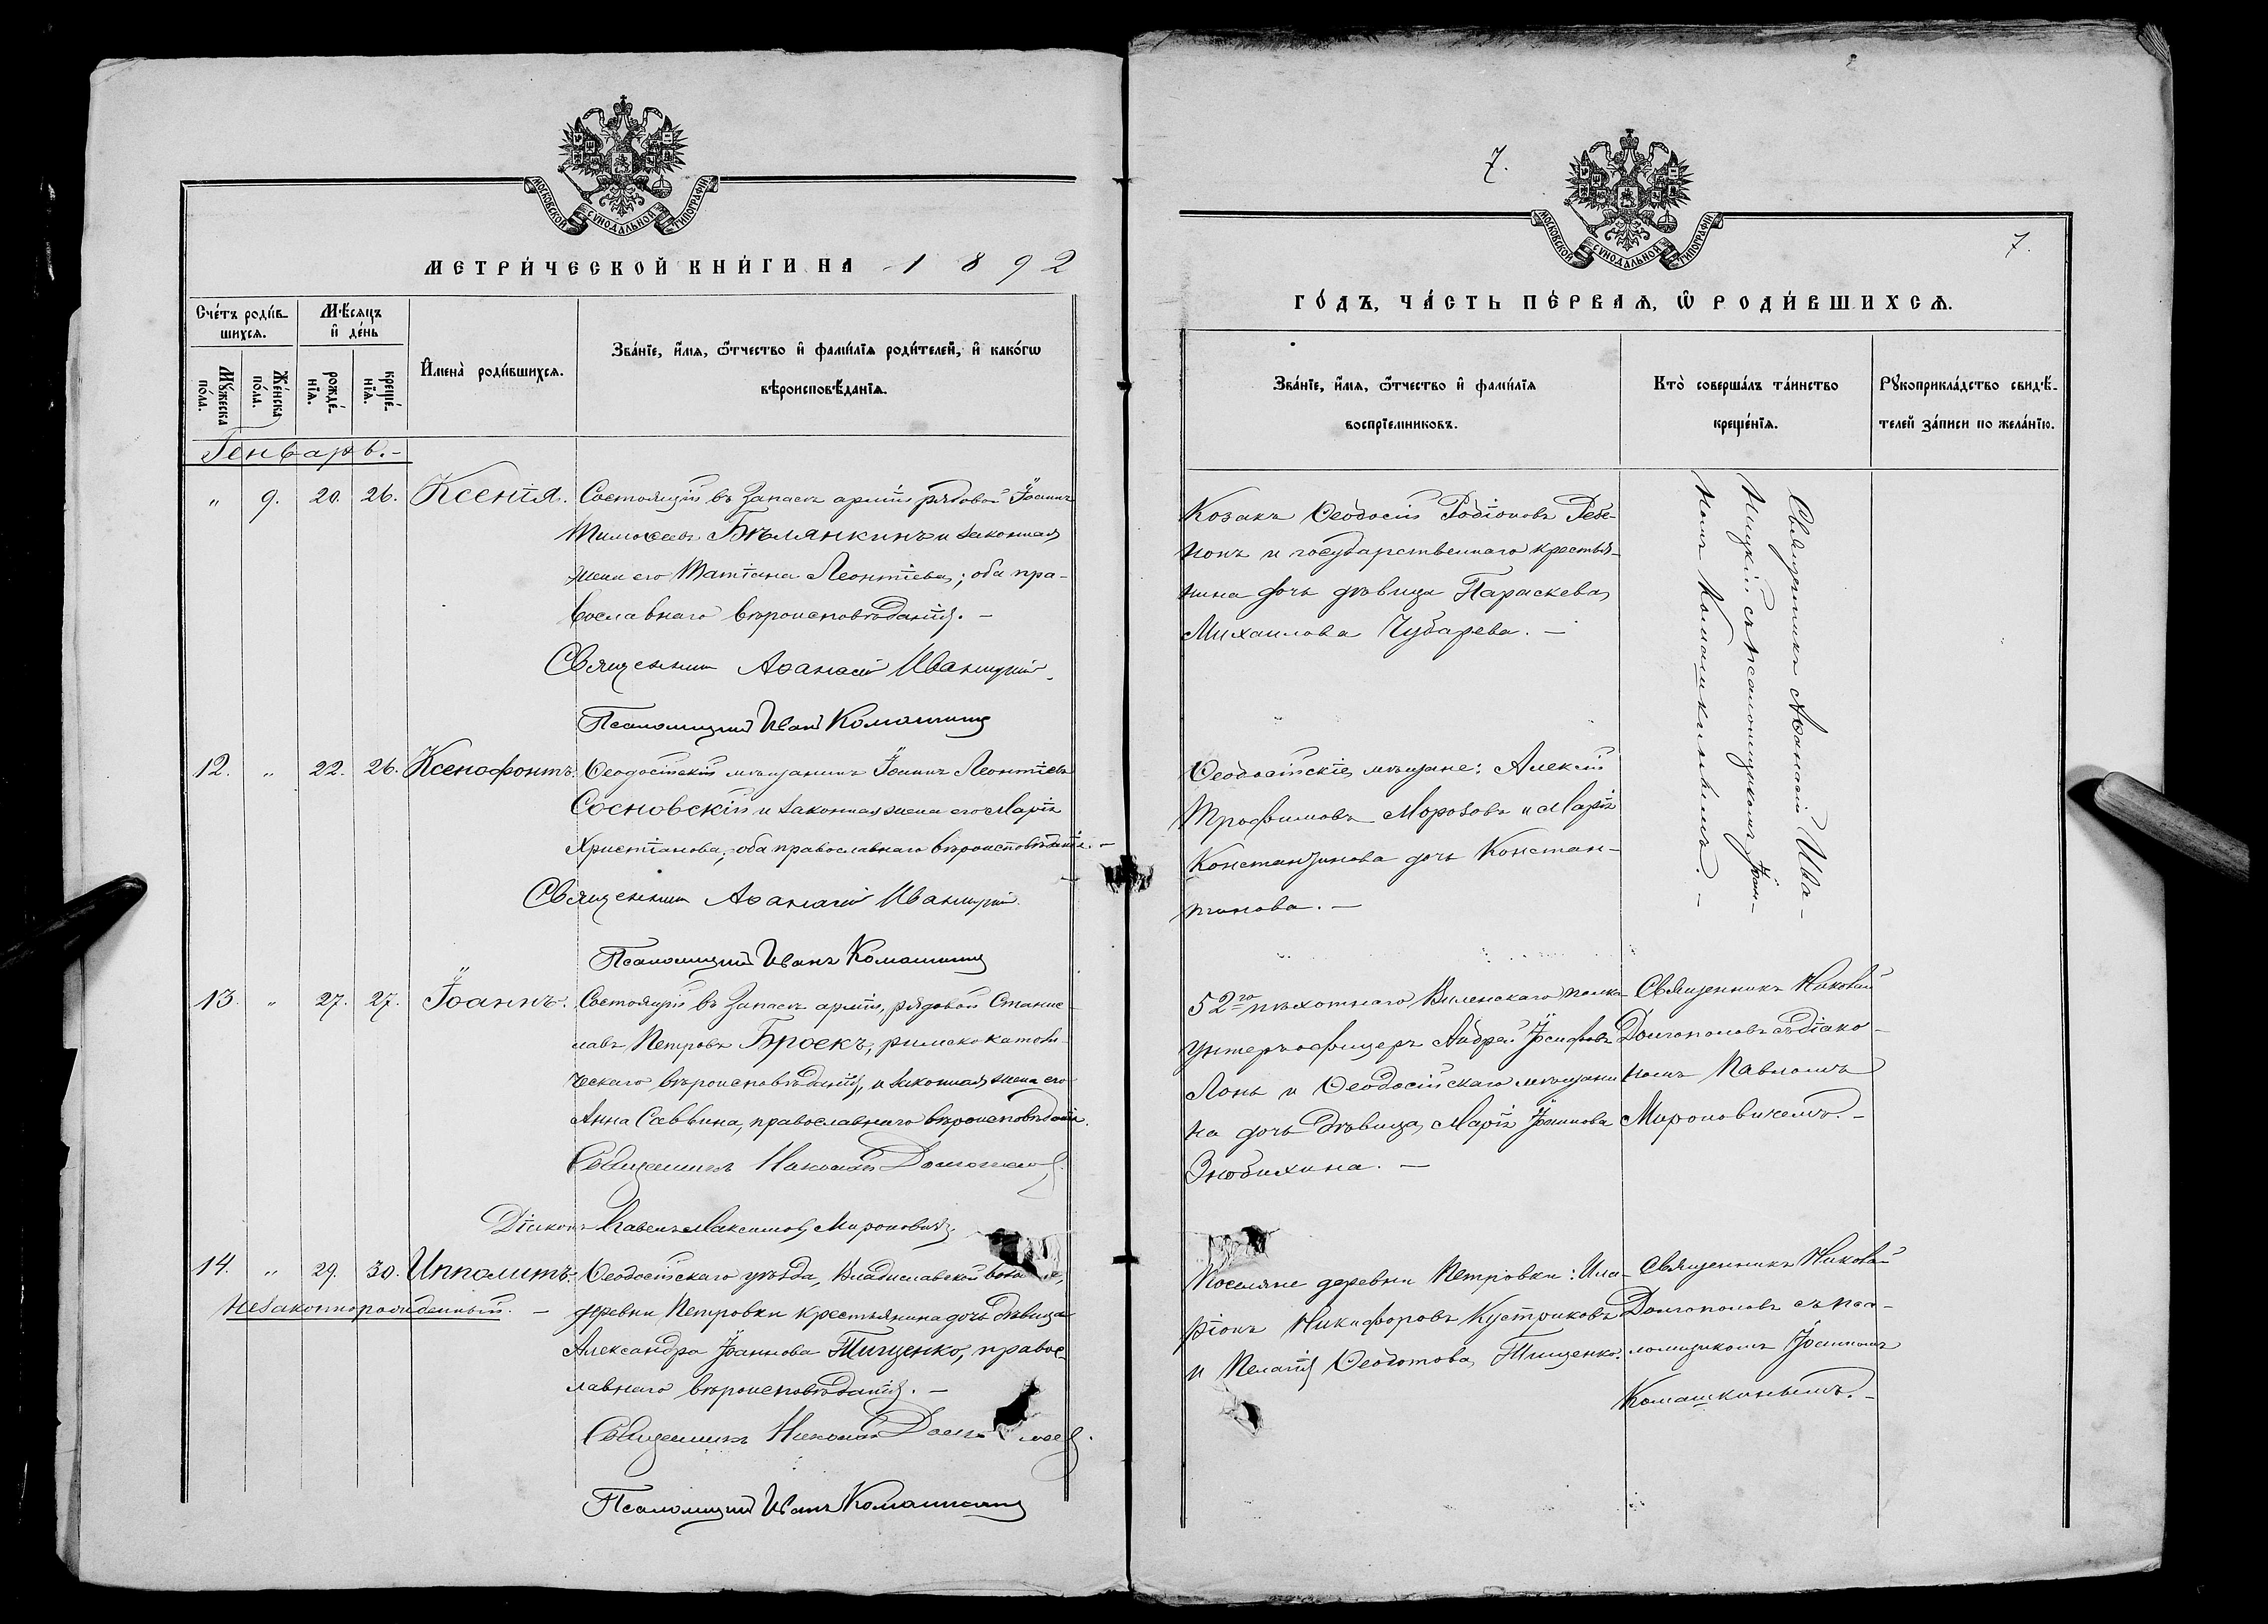 МОСКОВСКОЙ СѴНОДАЛЬНОЙ ТИПОГРАФІИ
МЕТРИ́ЧЕСКОЙ КНИ́ГИ НА 1892
Сче́тъ роди́в-
шихся.
Мѣ́сяцъ
и҆ де́нь
Мꙋ́жеска
по́ла.
Же́нска
по́ла.
рожде́-
нїя.
креще́-
нїя.
И҆мена̀ роди́вшихся.
Зва́нїе, и҆́мя, ѻ҆́тчество и҆ фами́лїя роди́телей, и҆ како́гѡ
вѣроисповѣ́данїя.
Генварь.-
" 9. 20. 26. Ксенія. Состоящій въ запасѣ арміи рядовой Іоаннъ
Тимоѳеевъ Бѣлянкинъ и законная
жена его Татіана Леонтіева; оба пра-
вославнаго вѣроисповѣданія. -
Священникъ Аѳанасій Иваницкій.
Псаломщикъ Иванъ Комашкинъ
12. " 22. 26. Ксенофонтъ. Ѳеодосійскій мѣщанинъ Іоаннъ Леонтіевъ
Сосновскій и законная жена его Марія
Христіанова; оба православнаго вѣроисповѣданія. -
Священникъ Аѳанасій Иваницкій.
Псаломщикъ Иванъ Комашкинъ
13. " 27. 27. Іоаннъ. Состоящій въ запасѣ арміи, рядовой Станис-
лавъ Петровъ Броекъ, римско католи-
ческаго вѣроисповѣданія, и законная жена его
Анна Саввина, православнаго вѣроисповѣданія.
Священникъ Николай Долгополовъ.
Діаконъ Павелъ Максимовъ Мироновичъ
14. " 29. 30. Ипполитъ. Ѳеодосійскаго уѣзда, Владиславской
незаконнорожденный. - деревни Петровки крестьянина дочь дѣвица
Александра Іоаннова Тищенко, правос-
лавнаго вѣроисповѣданія. -
Священникъ Николай
Псаломщикъ Иванъ Комашкинъ
7.
МОСКОВСКОЙ СѴНОДАЛЬНОЙ ТИПОГРАФІИ
7.
ГО́ДЪ, ЧА́СТЬ ПЕ́РВАЯ, Ѡ҆ РОДИ́ВШИХСЯ.
Зва́нїе, и҆́мя, ѻ҆́тчество и҆ фами́лїя
воспрїе́мниковъ.
Кто̀ соверша́лъ та́инство
креще́нїя.
Рꙋкоприкла́дство свидѣ́-
телей за́писи по жела́нїю.
Козакъ Ѳеодосій Родіоновъ
и государственнаго крестья-
нина дочь дѣвица Параскева
Михаилова Чубарева. -
Священникъ Аѳанасій Ива-
ницкій съ псаломщикомъ Іоан-
номъ Комашкинымъ. -
Ѳеодосійскіе мѣщане: Алексій
Трофимовъ Морозовъ и Марія
Константинова дочь Констан-
тинова. -
52го пѣхотнаго Виленскаго полка
унтеръ-офицеръ Андрей Іосифовъ
Лонь и Ѳеодосійскаго мѣщани
на дочь дѣвица Марія Іоаннова
Знобихина. -
Священникъ Николай
Долгополовъ съ діако-
номъ Павломъ
Мироновичемъ. -
Поселяне деревни Петровки: Ила-
ріонъ Никифоровъ Кустриковъ
и Пелагія Тищенко.
Священникъ Николай
Долгополовъ съ пса-
ломщикомъ Іоанномъ
Комашкинымъ. -